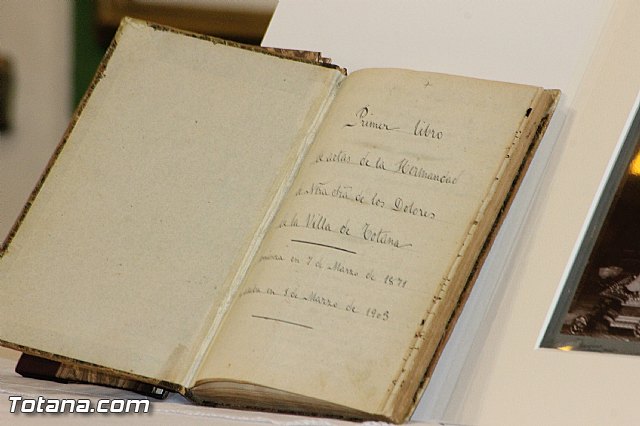 Primer libro
de actas de la Hermandad
de Ntra Sra de los Dolores
de la Villa de Totana
en 7 de Marzo de 1871
en 8 de Marzo de 1903
Totana.com